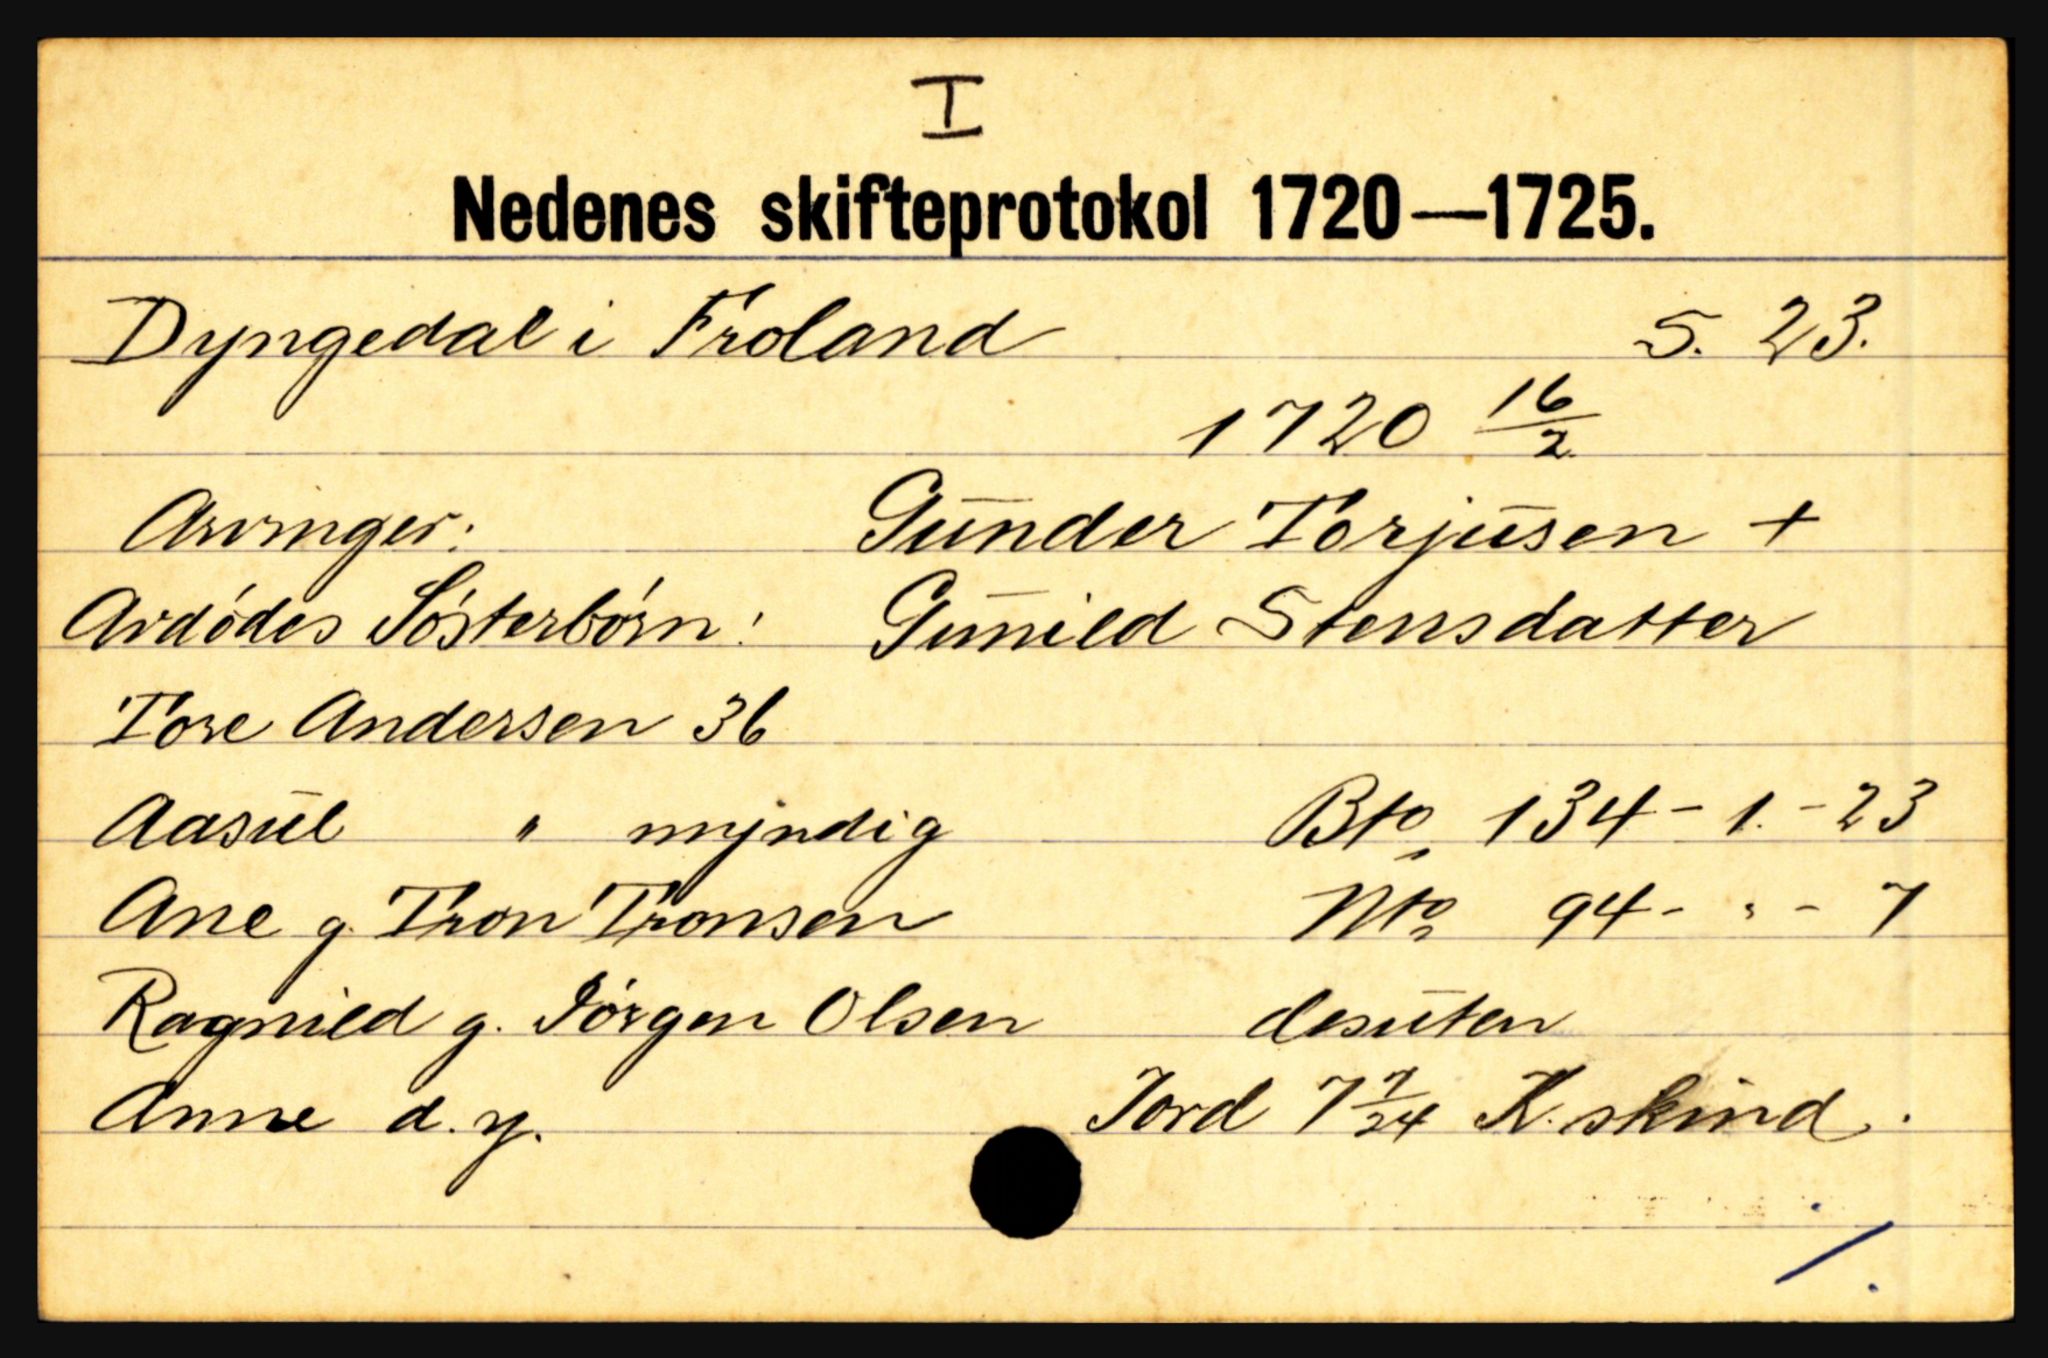 I
Nedenes skifteprotokol 1720—1725.
Dyngedal i Froland S. 23.
1720 16/2
Arvinger: Gunder Torjusen +
Avdödes Sösterbörn: Gunild Stensdatter
Tore Andersen 36
Aasul " myndig Bto 134 - 1. - 23
Ane g. Tron Tronsen Nto 94 - " - 7
Ragnild g. Jörgen Olsen desuten
Anne d. y. Jord 7 7/24 K. skind.